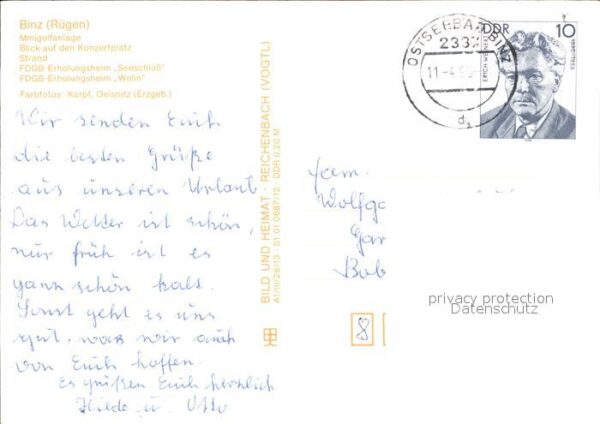 Binz (Rügen)
Minigolfanlage
Blick auf den Konzertplatz
Strand
FDGB-Erholungsheim „Seeschloß"
FDGB-Erholungsheim „Wolin"
Farbfotos: Karpf, Oelsnitz (Erzgeb.)
Wir senden Euch
die besten Grüße
aus unseren Urlaub
Das Wetter ist schön,
nur früh ist es
ganz schön kalt.
Sonst geht es uns
gut, was wir auch
von Euch hoffen.
Es grüßen Euch herzlich
Hilde u. Otto
BILD UND HEIMAT · REICHENBACH (VOGTL)
A1/III/26/13 01 01 0667/12 DDR 0,20 M
OSTSEEBAD BINZ
2337
11.-4.90
DDR
10
ERICH WEINERT
1890-1953
Fam.
Wolfga
Gar
Bob
8
privacy protection
Datenschutz